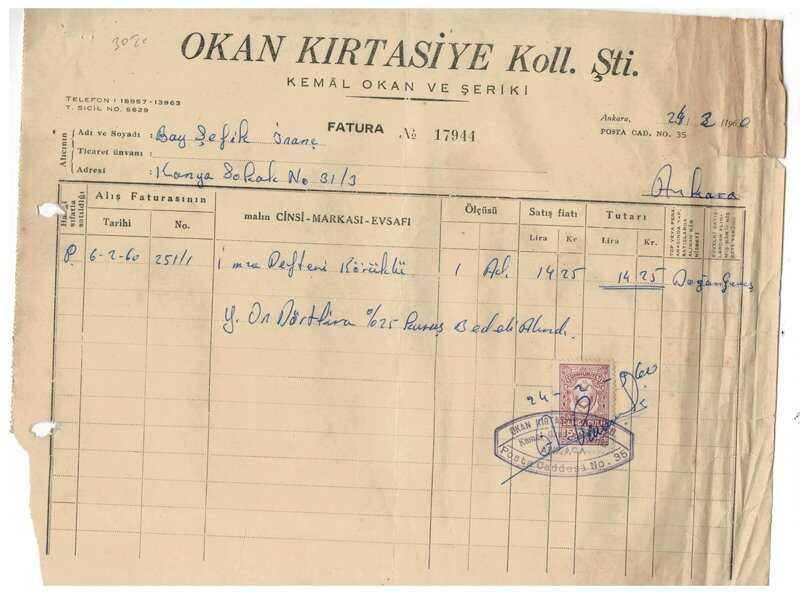 OKAN KIRTASİYE Koll. Şti.
KEMÂL OKAN VE ŞERİKİ
TELEFON : 18957-13963
T. SİCİL NO. 5629
Ankara, 24 / 2 / 1960
POSTA CAD. NO. 35
FATURA № 17944
Alıcının
Adı ve Soyadı : Bay Şefik İnanç
Ticaret ünvanı :
Adresi : Konya Sokak No 31/3
Ankara
Alış Faturasının
Tarihi No.
malın CİNSİ-MARKASI-EVSAFI
Ölçüsü
Satış fiatı
Lira Kr
Tutarı
Lira Kr.
P. 6-2-60 251/1 İmza Defteri Körüklü 1 Ad. 14 25 14.25
Y. On Dörtlira %25 Kuruş Bedeli Alındı.
24-2-960
OKAN KIRTAS
Posta Caddesi No. 35